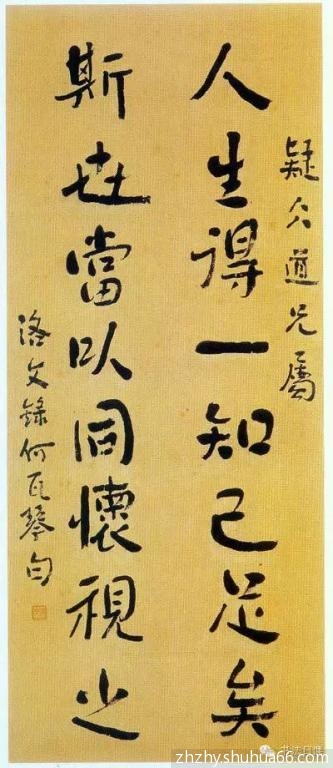 疑仌道兄屬
人生得一知己足矣
斯世當以同懷視之
洛文錄何瓦琴句
zhzhyshuhua66.com